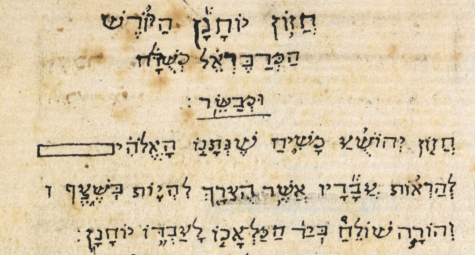 חזון יוחנן הקודש
וכבשר :
חזון יהושע משיח שנתנו האלהי
להראות עבדיו אשר הצרך להיות בשצף ו
והורה שולח ביד המלאכו לעבדו יוחנן :